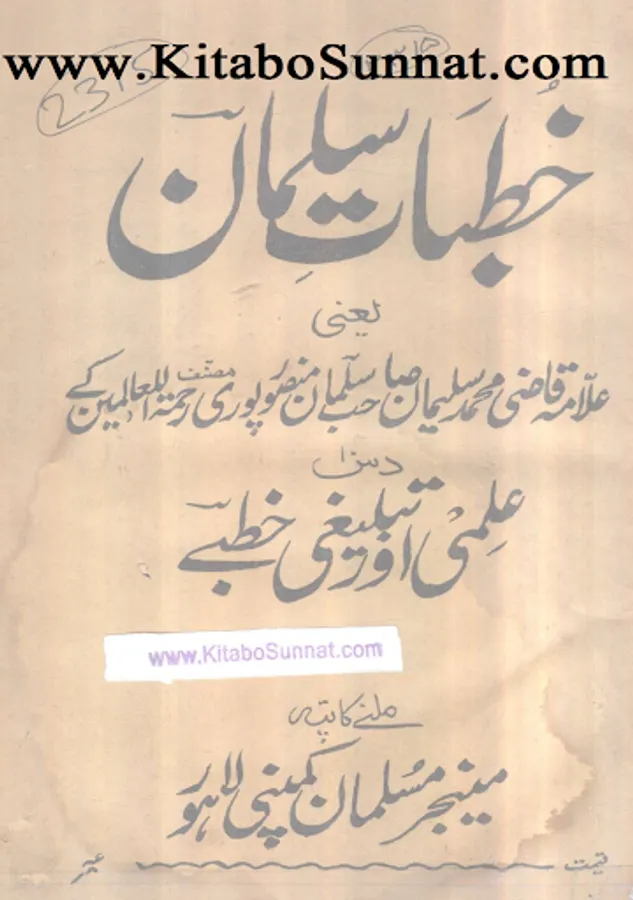 www.KitaboSunnat.com
2315
خطباتِ سلیمان
یعنی
علّامہ قاضی محمد سلیمان صاحب سلمان منصورپوری مصنف رحمۃ للعالمین کے
دس
علمی اور تبلیغی خطبے
www.KitaboSunnat.com
ملنے کا پتہ
مینیجر مسلمان کمپنی لاہور
قیمت